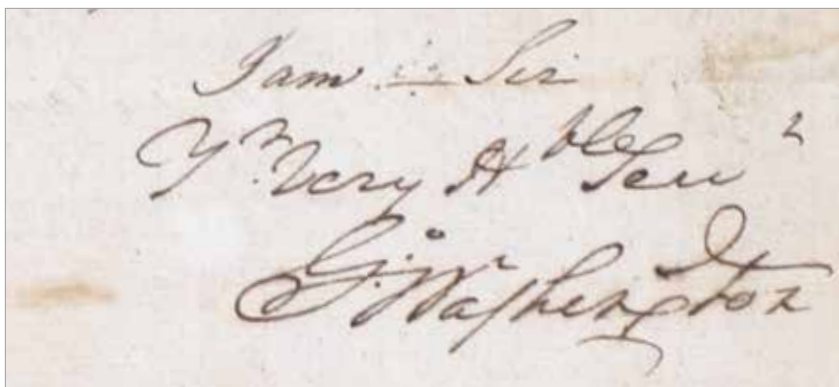 I am – Sir
Yr. Very Hble Servt
Go: Washington